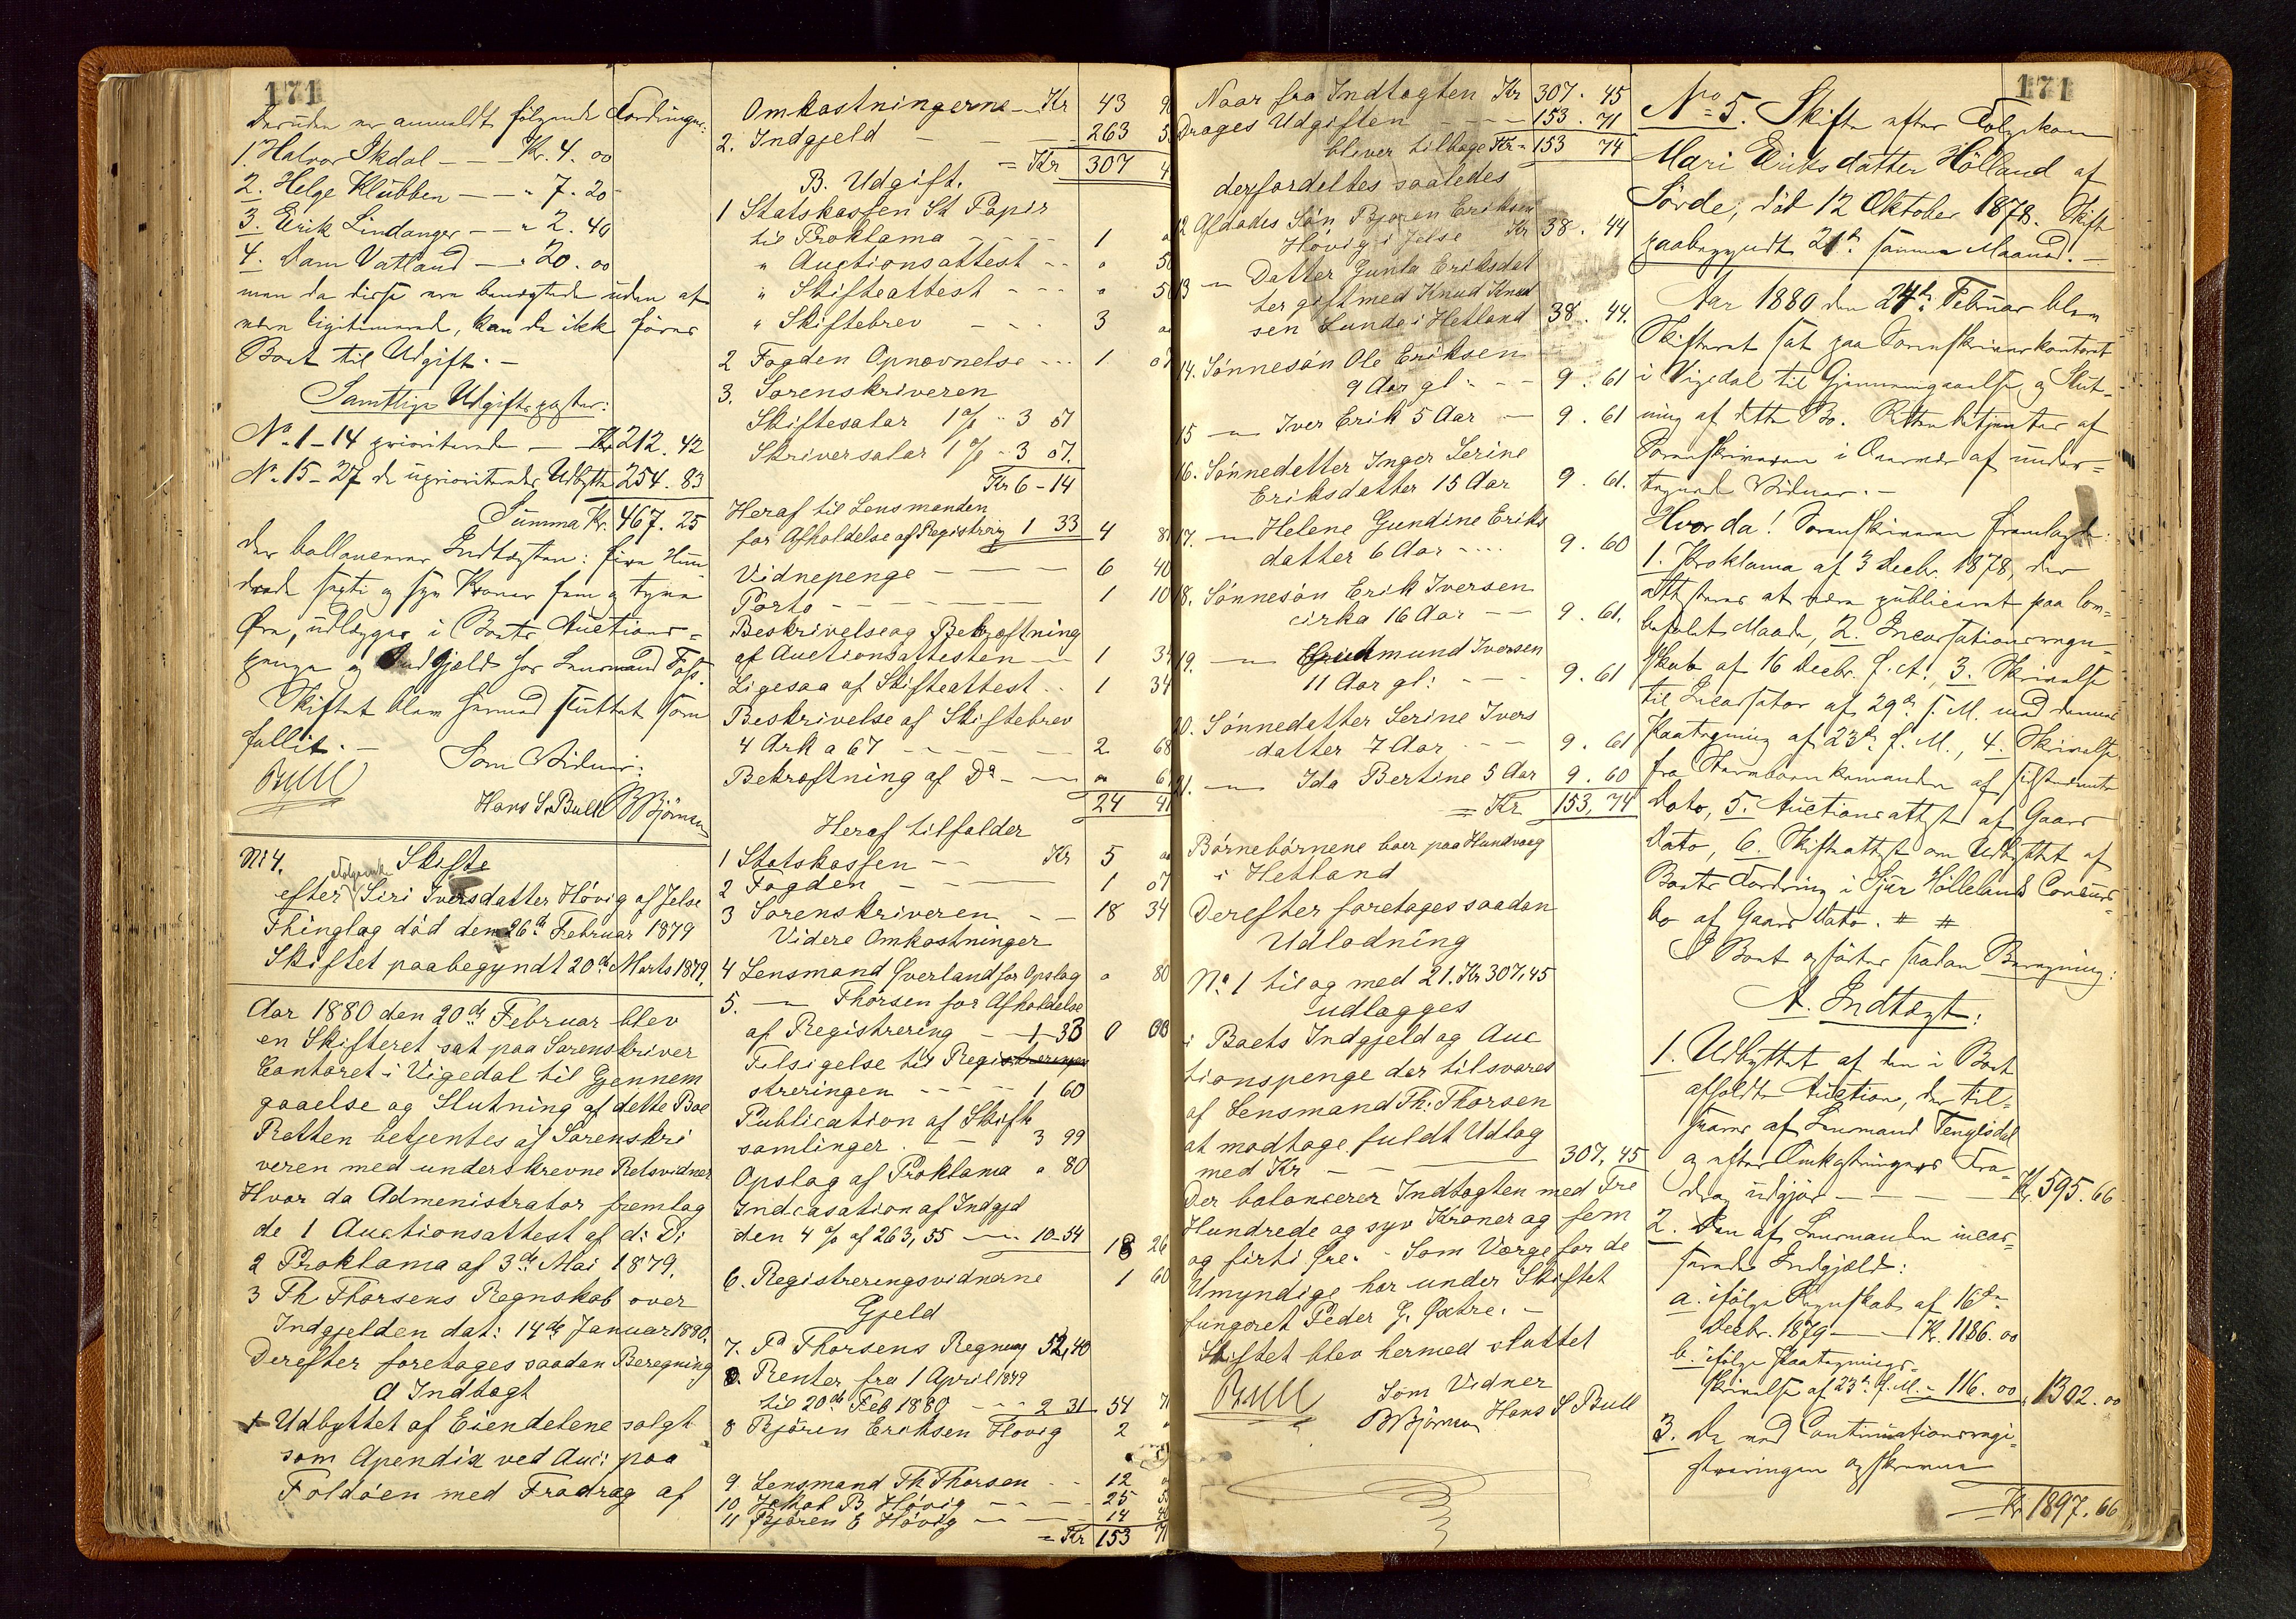 171
Desuden er anmeldt følgende Fordringer:
1. Halvor Skdal — — Kr. 4. 00
2. Helge Klubben — — " 7. 20
3. Erik Lindanger — — " 2. 40
4. Dam Vatland — " 20. 00
men da disse ere benægtede uden at
være legitimerede, kan de ikke føres
Boet til Udgift. —
Samtlige Udgiftsposter:
No. 1-14 prioriterede — Kr 212. 42
No. 15-27 de uprioriterede Udbytte 254. 83
Summa Kr. 467. 25
der ballancerer Indtægten: fire Hun-
drede sexti og syv Kroner fem og tyve
Øre, udlægges i Boets Auctions-
penge og Indgjæld hos Lensmand Foss.
Skiftet blev hermed sluttet som
fallit. —
Som Vidner:
Bull
Hans S. Bull BBjörnsen
No 4. Skifte
efter Følgekone Siri Iversdatter Høvig af Jelse
Thinglag död den 26de Februar 1879
Skiftet paabegyndt 20de Marts 1879.
Aar 1880 den 20de Februar blev
en Skifteret sat paa Sorenskriver
Contoret i Vigedal til Gjennem
gaaelse og Slutning af dette Boe
Retten betjentes af Sorenskri
veren med underskrevne Retsvidner
Hvor da Admenistrator fremlag
de 1 Auctionsattest af d: D:
2 Proklama af 3de Mai 1879.
3 Th. Thorsens Regnskab over
Indgjelden dat: 14de Januar 1880.
Derefter foretages saadan Beregning
A Indtagt
1 Udbyttet af Eiendelene solgt
som Apendix ved Auc: paa
Foldöen med Fradrag af
Omkostningerne — Kr 43 9
2. Indgjeld — — — 263 5
= Kr 307 4
B. Udgift.
1 Statskassen St Papir
til Proklama — — — 1
" Auctionsattest - - " 50
" Skifteattest - - - " 50
" Skiftebrev — - - 3
2 Fogden Opnævnelse - - - 1 07
3. Sorenskriveren
Skiftesalar 1 % " 3 07
Skriversalar 1 % " 3 07.
Kr 6-14
Heraf til Lensmanden
for Afholdelse af Registrerig 1 33 4 8
Vidnepenge — — — 6 40
Porto — — — — 1 10
Beskrivelse og Bekræftning
af Auctionsattesten — 1 34
Ligesaa af Skifteattest - - 1 34
Beskrivelse af Skiftebrev
4 Ark a 67 — — — — 2 68
Bekræftning af Do - — " 6
24 41
Heraf tilfalder
1 Statskassen — — Kr 5
2 Fogden — — — 1 07
3 Sorenskriveren — — 18 34
Videre Omkostninger
4 Lensmand Qverland for Opslag " 80
5. — " Thorsen for Afholdelse
af Registrering — 1-33 0 00
Tilsigelse til Regi
streringen — — — 1 60
Publication af Skifte
samlinger — 3 99
Opslag af Proklama " 80
Indcasation af Indgjel
den 4 % af 263,55 — 10-54 18 26
6. Registreringsvidnerne 1 60
Gjeld
7. Pa Thorsens Regning 52,40
Renter fra 1 April 1879
til 20de Feb 1880 - - - 2 31 54 71
8 Björen Eriksen Hövig 2
9 Lensmand Th Thorsen — 12
10 Jakob B. Hövig — — 25 5
11 Björen E Hövig — — 14 40
= Kr 153 71
171
Naar fra Indtagten Kr 307. 45
Drages Udgiften — — — 153. 71
bliver tilbage Kr = 153 74
der fordeltes saaledes
12 Afdødes Sön Björen Eriksen
Hövig i Jelse Kr 38. 44
13 — " Datter Gunla Eriksdat
ter gift med Knud Knud
sen Lunde i Hetland 38. 44.
14. Sönnesön Ole Eriksen
9 Aar gl: — — 9. 61
15 — " Iver Erik 5 Aar — 9. 61
16. Sönnedatter Inger Serine
Eriksdatter 15 Aar 9. 61.
17. — " Helene Gundine Eriks
datter 6 Aar - - - - 9. 60
18. Sönnesön Erik Iversen
cirka 16 Aar — — 9. 61.
19. — " Gudmund Iversen
11 Aar gl: — — — 9. 61
20. Sönnedatter Serine Ivers
datter 7 Aar - — — 9. 61
21. — " Ida Bertine 5 Aar 9. 60
= Kr 153, 74
Börnebörnene boer paa Hundvaag
i Hetland
Derefter foretages saadan
Udlodning
No 1 til og med 21. Kr 307,45
udlagges
i Boets Indgjeld og Auc
tionspenge der tilsvares
af Lensmand Th. Thorsen
at modtage fuldt Udlag
med Kr — — — 307, 45
Der balancerer Indtagten med Tre
Hundrede og syv Kroner og fem
og firti Øre. - Som Værge for de
Umyndige har under Skiftet
fungeret Peder G. Øxtre. —
Skiftet blev hermed sluttet
Bull Som Vidner
BBjörnsen Hans S Bull
171
No 5. Skifte efter Følgekone
Mari Eriksdatter Hölland af
Sövde, död 12 Oktober 1878. Skifte
paabegyndt 21de samme Maaned. —
Aar 1880 den 24de Februar blev
Skifteret sat paa Sorenskriverkontoret
i Vigedal til Gjennemgaaelse og Slut-
ning af dette Bo. Retten betjentes af
Sorenskriveren i Overvær af under-
tegnede Vidner. —
Hvor da! Sorenskriveren fremlagde:
1. Proklama af 3 Decbr. 1878, der
attesteres at være publiceret paa lov-
befalet Maade, 2. Incassationsregn-
skab af 16 Decbr. f. A., 3. Skrivelse
til Incassator af 29de f. M. med dennes
Paategning af 23de f. M., 4. Skrivelse
fra Stervboenkemanden af sidstnævnte
Dato, 5. Auctionsattest af Gaars
Dato, 6. Skifteattest om Udbyttet af
Boets Fordring i Sjur Höllelands Concurs-
bo af Gaars Dato. # #
I Boet opförtes saadan Beregning:
A. Indtægt:
1. Udbyttet af den i Boet
afholdte Auction, der til-
svares af Lensmand Tengesdal
og efter Omkostningers Fra-
drag udgjør — — — Kr 595. 66
2. Den af Lensmanden incas-
serede Indgjæld:
a. ifölge Regnskab af 16de
Decbr. 1879 — — Kr. 1186. 00
b. ifölge Paategnings-
skrivelse af 23de f. M. - 116. 00 " 1302. 00
3. De ved Continuationsregi-
streringen opskrevne
— Kr 1897. 66